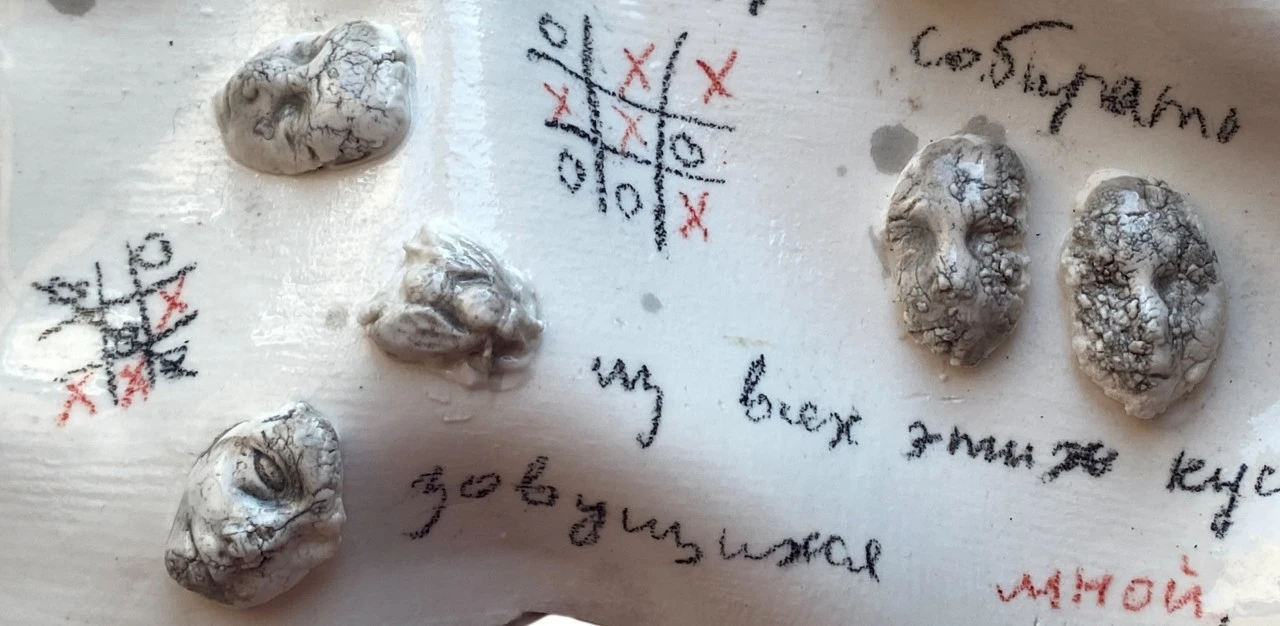 собирать
из всех этих кус
зовущихся
мной,